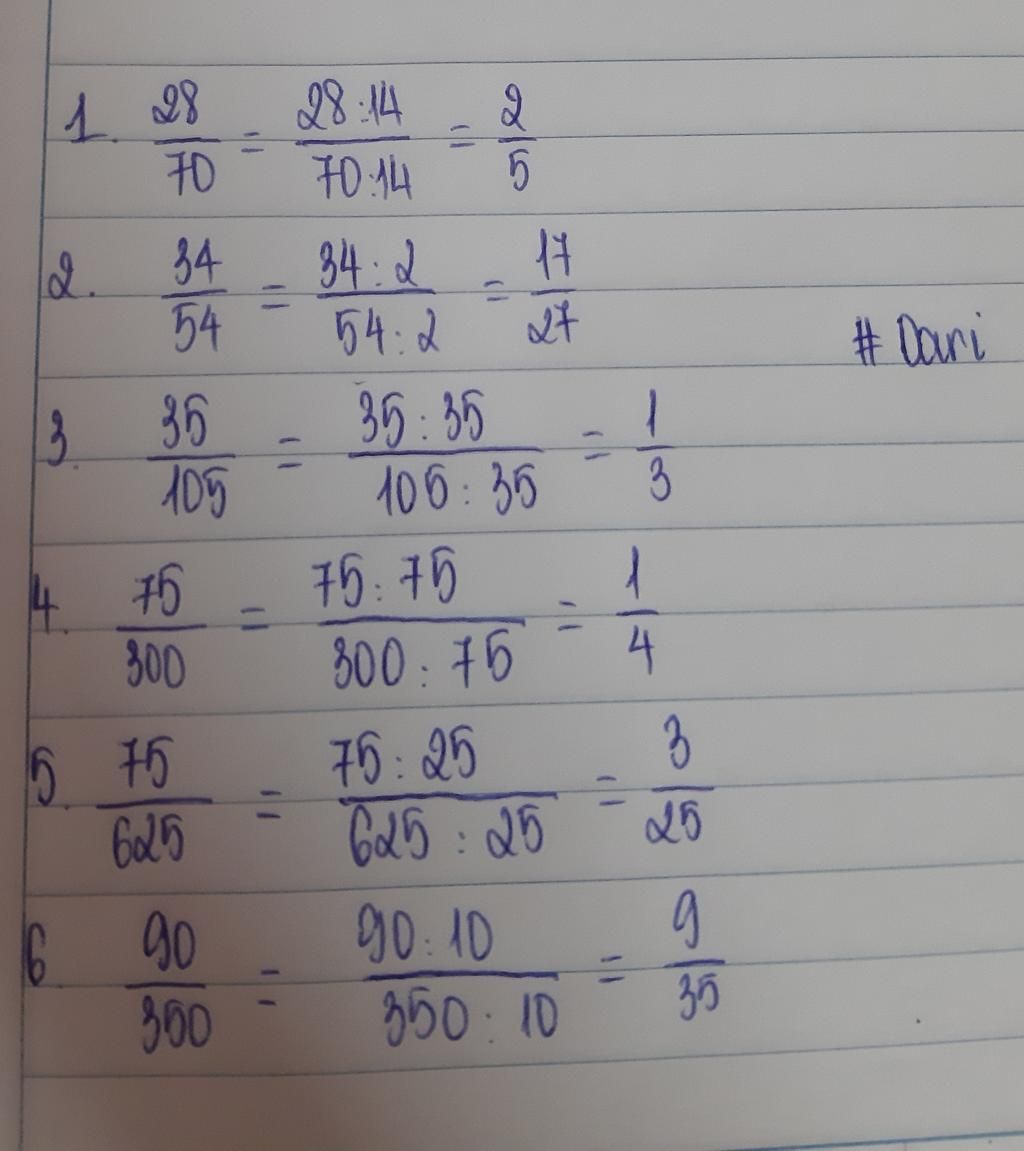 1. 28/70 = 28:14/70:14 = 2/5
2. 34/54 = 34:2/54:2 = 17/27
# Dari
3. 35/105 = 35:35/105:35 = 1/3
4. 75/300 = 75:75/300:75 = 1/4
5. 75/625 = 75:25/625:25 = 3/25
6. 90/350 = 90:10/350:10 = 9/35